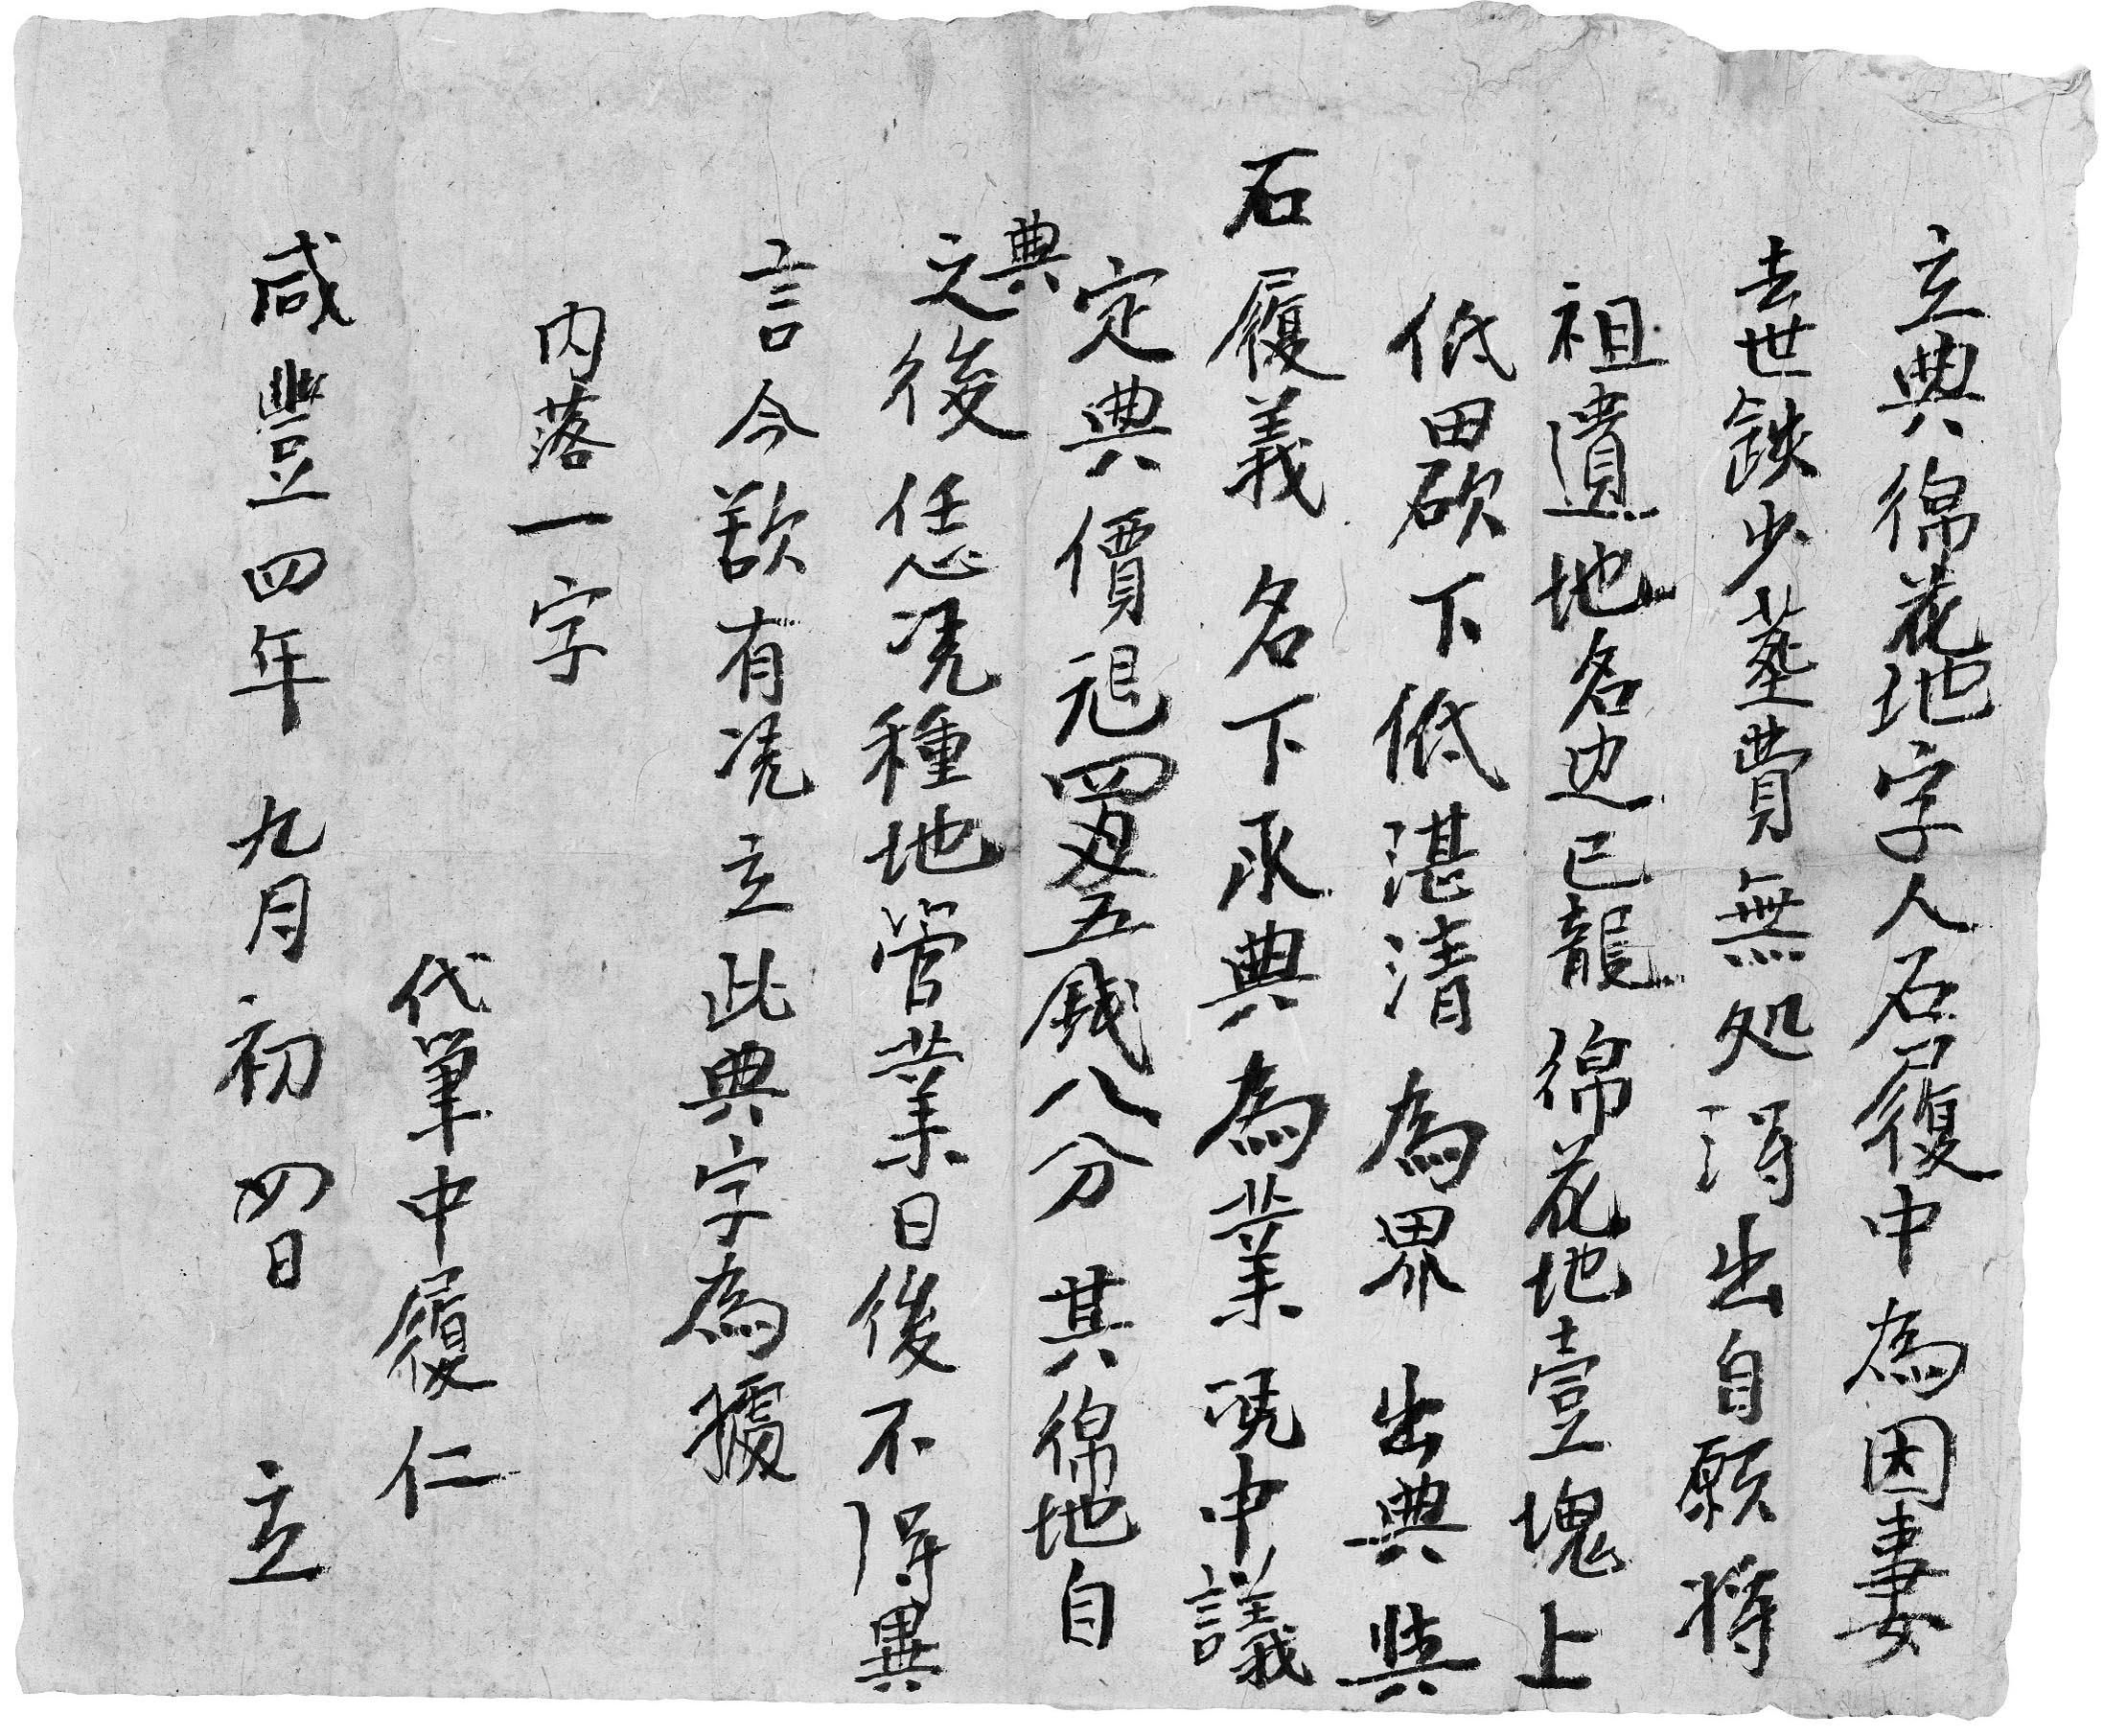 立典綿花地字人石履中為因妻
去世鈌少葬費無処淂出自願将
祖遺地名边已龍綿花地壹塊上
低田砍下低湛清為界出典與
石履義名下承典為業凴中議
定典價艮四两五錢八分其綿地自
典之後恁凴種地管業日後不淂異
言今欲有凴立此典字為據
内落一字
代筆中履仁
咸豐四年九月初四日立